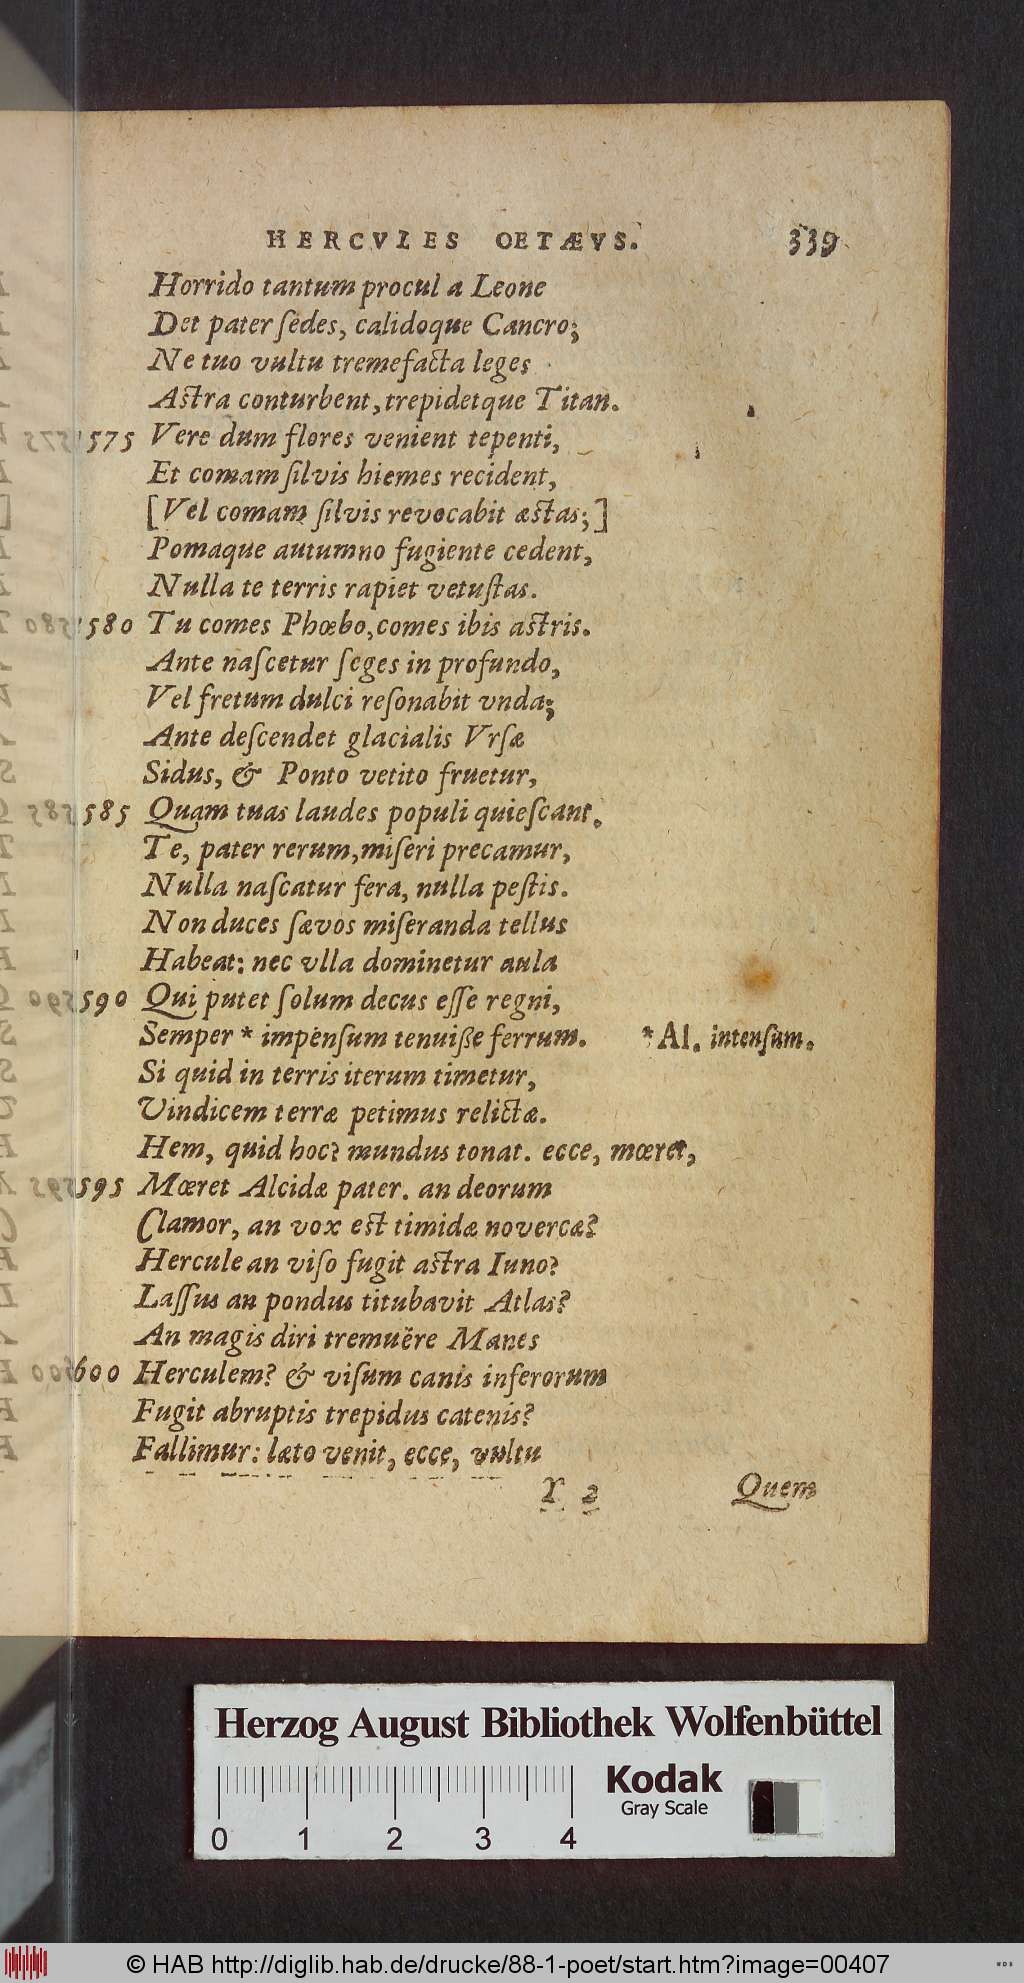 HERCVLES OETÆVS. 339
Horrido tantum procul a Leone
Det pater ſedes, calidoque Cancro;
Ne tuo vultu tremefacta leges
Astra conturbent, trepidetque Titan.
1575 Vere dum flores venient tepenti,
Et comam ſilvis hiemes recident,
[Vel comam ſilvis revocabit æstas;]
Pomaque autumno fugiente cedent,
Nulla te terris rapiet vetuſtas.
1580 Tu comes Phœbo, comes ibis astris.
Ante naſcetur ſeges in profundo,
Vel fretum dulci reſonabit vnda;
Ante deſcendet glacialis Vrſæ
Sidus, & Ponto vetito fruetur,
585 Quam tuas laudes populi quieſcant.
Te, pater rerum, miſeri precamur,
Nulla naſcatur fera, nulla peſtis.
Non duces ſævos miſeranda tellus
Habeat: nec vlla dominetur aula
590 Qui putet ſolum decus eſſe regni,
Semper * impenſum tenuiße ferrum. * Al. intenſum.
Si quid in terris iterum timetur,
Vindicem terræ petimus relictæ.
Hem, quid hoc? mundus tonat. ecce, mœret,
595 Mœret Alcidæ pater. an deorum
Clamor, an vox est timidæ novercæ?
Hercule an viſo fugit astra Iuno?
Laſſus an pondus titubavit Atlas?
An magis diri tremuêre Manes
600 Herculem? & viſum canis inferorum
Fugit abruptis trepidus catenis?
Fallimur: læto venit, ecce, vultu
Y 2 Quem
Herzog August Bibliothek Wolfenbüttel
Kodak
Gray Scale
0 1 2 3 4
© HAB http://diglib.hab.de/drucke/88-1-poet/start.htm?image=00407